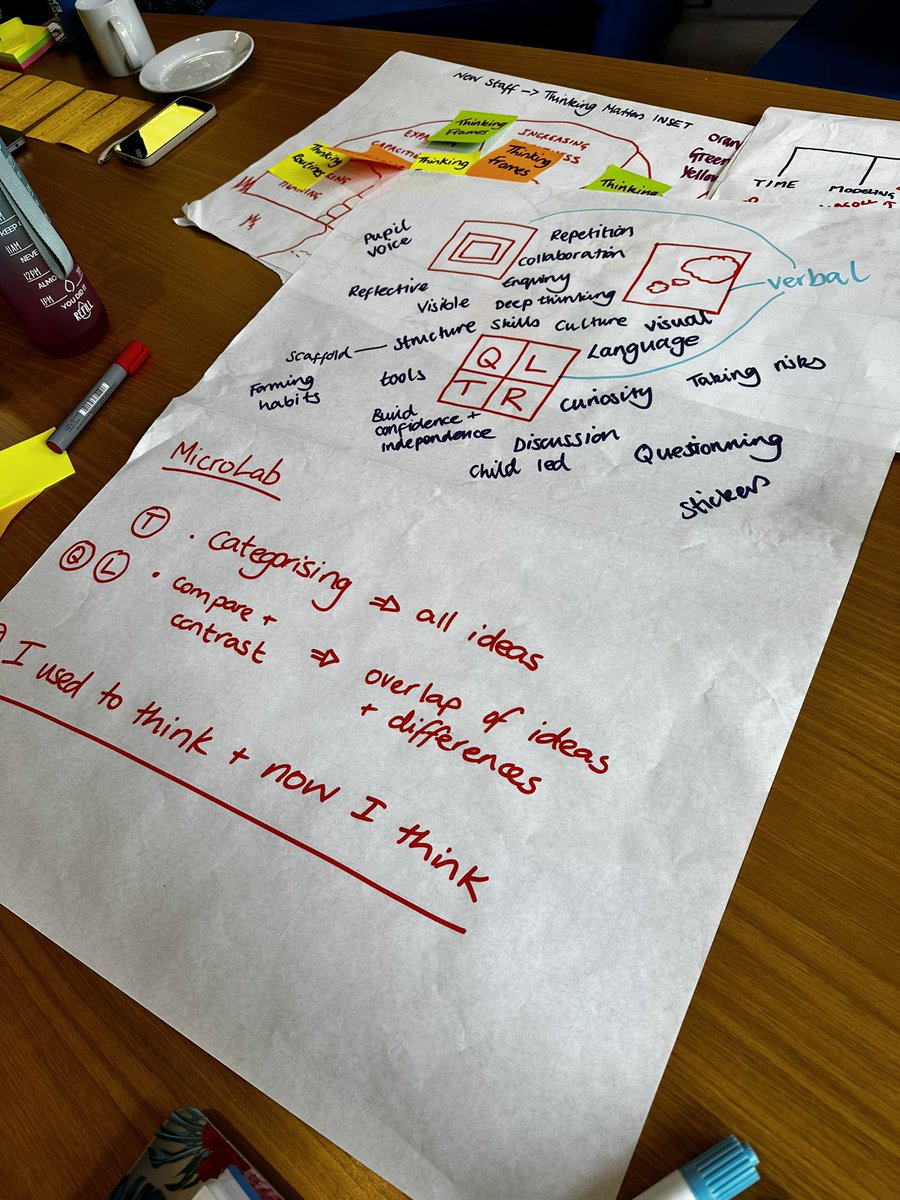 New Staff → Thinking Matters INSET
Thinking
Frames
INCREASING
Thinking
Routines
CAPACITIES
Thinking
Thinking
Frames
Thinking
Green
Yellow
TIME
MODELING
Pupil
voice
Repetition
Collaboration
Enquiry
Reflective
Visible
Deep thinking
verbal
Scaffold — Structure
Skills
Culture
visual
Language
Forming
habits
tools
Q L
T R
Curiosity
Taking risks
Build
confidence +
independence
Discussion
Child led
Questionning
Stickers
MicroLab
T • categorising ⇒ all ideas
Q L • compare +
contrast ⇒ overlap of ideas
+ differences
I used to think + now I think
11AM
NEVE
12PM
ALMO
1PM
YOU DID IT
REFILL